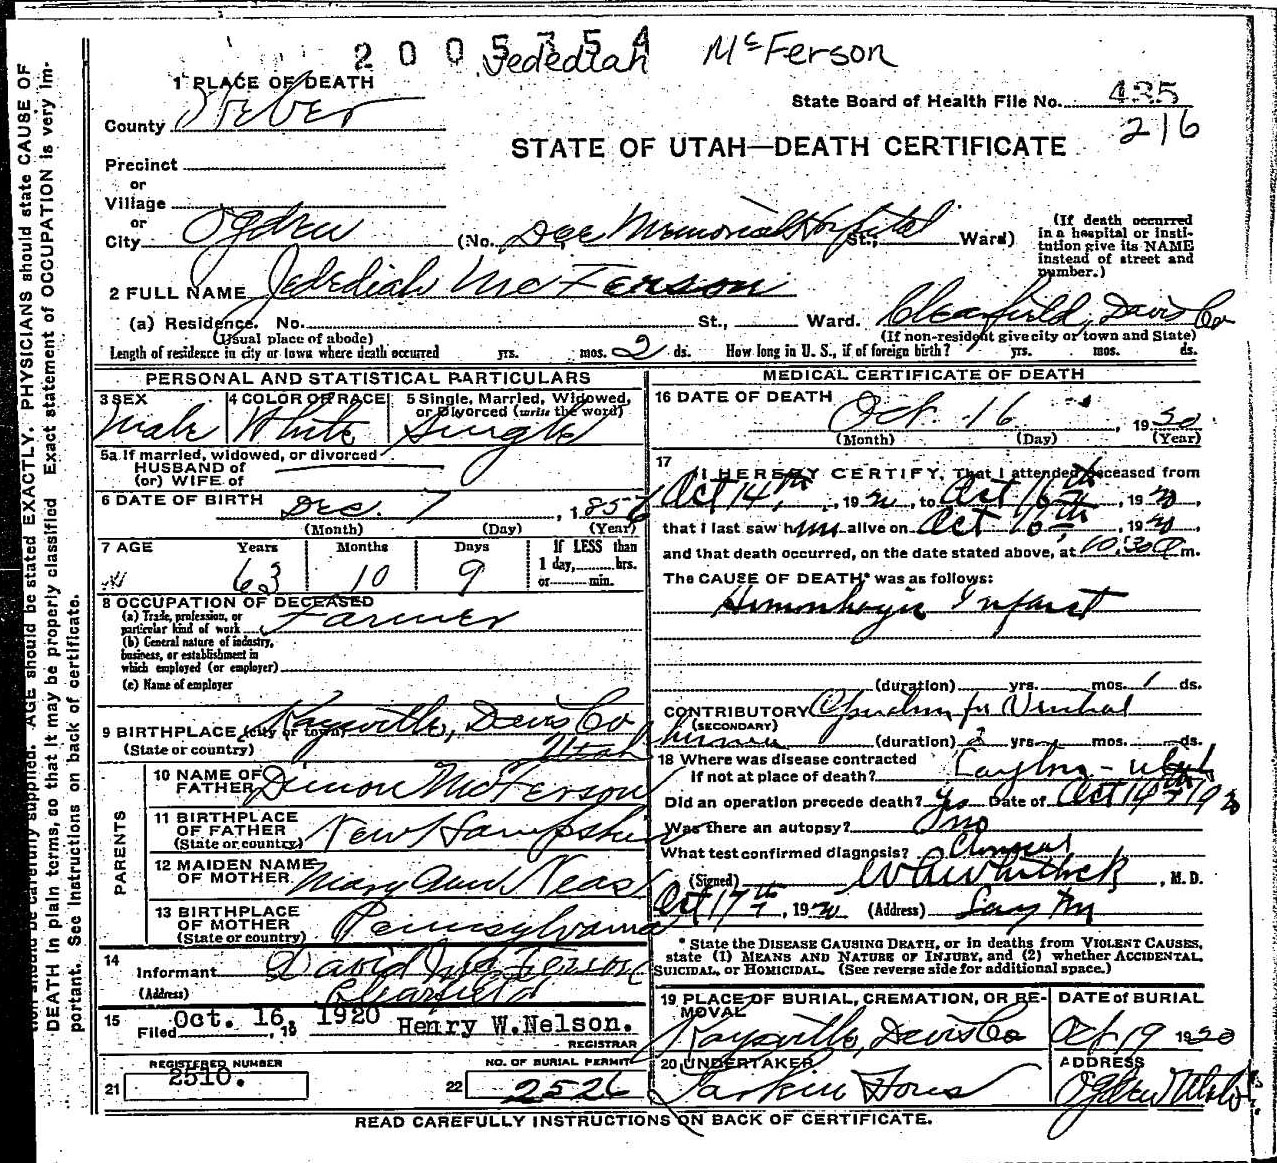 2005754
Jedediah McFerson
1 PLACE OF DEATH
County Weber
State Board of Health File No. 435
216
STATE OF UTAH—DEATH CERTIFICATE
Precinct
or
Village
or
City Ogden (No. Dee Memorial Hospital St.; Ward)
(If death occurred in a hospital or institution give its NAME instead of street and number.)
2 FULL NAME Jedediah McFerson
(a) Residence. No. St., Ward. Clearfield, Davis Co
(Usual place of abode) (If non-resident give city or town and State)
Length of residence in city or town where death occurred yrs. mos. 2 ds. How long in U. S., if of foreign birth? yrs. mos. ds.
PERSONAL AND STATISTICAL PARTICULARS
3 SEX Male
4 COLOR OR RACE White
5 Single, Married, Widowed, or Divorced (write the word) Single
5a If married, widowed, or divorced
HUSBAND of
(or) WIFE of
6 DATE OF BIRTH Dec. 7, 1856
(Month) (Day) (Year)
7 AGE Years 63 Months 10 Days 9
If LESS than 1 day, hrs. or min.
8 OCCUPATION OF DECEASED
(a) Trade, profession, or particular kind of work Farmer
(b) General nature of industry, business, or establishment in which employed (or employer)
(c) Name of employer
9 BIRTHPLACE (city or town) Kaysville, Davis Co
(State or country) Utah
PARENTS
10 NAME OF FATHER Dimon McFerson
11 BIRTHPLACE OF FATHER (State or country) New Hampshire
12 MAIDEN NAME OF MOTHER Mary Ann Neas
13 BIRTHPLACE OF MOTHER (State or country) Pennsylvania
14 Informant David McFerson
(Address) Clearfield
15 Filed Oct. 16, 1920 Henry W. Nelson.
REGISTRAR
REGISTERED NUMBER
21 2510.
NO. OF BURIAL PERMIT
22 2526
MEDICAL CERTIFICATE OF DEATH
16 DATE OF DEATH Oct. 16, 1920
(Month) (Day) (Year)
17 I HEREBY CERTIFY, That I attended deceased from
Oct 14th, 1920, to Oct 16th, 1920,
that I last saw him alive on Oct 16th, 1920,
and that death occurred, on the date stated above, at 10:30 m.
The CAUSE OF DEATH* was as follows:
Hemorrhagic Infarct
(duration) yrs. mos. 1 ds.
CONTRIBUTORY Operation for Ventral
(SECONDARY) hernia (duration) 2 yrs. mos. ds.
18 Where was disease contracted
If not at place of death? Layton - Utah
Did an operation precede death? Yes Date of Oct 14th 1920
Was there an autopsy? no
What test confirmed diagnosis? Clinical
(Signed) W A Whitlock, M.D.
Oct 17th, 1920 (Address) Layton
* State the DISEASE CAUSING DEATH, or in deaths from VIOLENT CAUSES, state (1) MEANS AND NATURE OF INJURY, and (2) whether ACCIDENTAL, SUICIDAL, or HOMICIDAL. (See reverse side for additional space.)
19 PLACE OF BURIAL, CREMATION, OR REMOVAL Kaysville, Davis Co
DATE of BURIAL Oct 19 1920
20 UNDERTAKER Larkin & Sons
ADDRESS Ogden Utah
READ CAREFULLY INSTRUCTIONS ON BACK OF CERTIFICATE.
tion should be carefully supplied. AGE should be stated EXACTLY. PHYSICIANS should state CAUSE OF
DEATH in plain terms, so that it may be properly classified. Exact statement of OCCUPATION is very im-
portant. See Instructions on back of certificate.